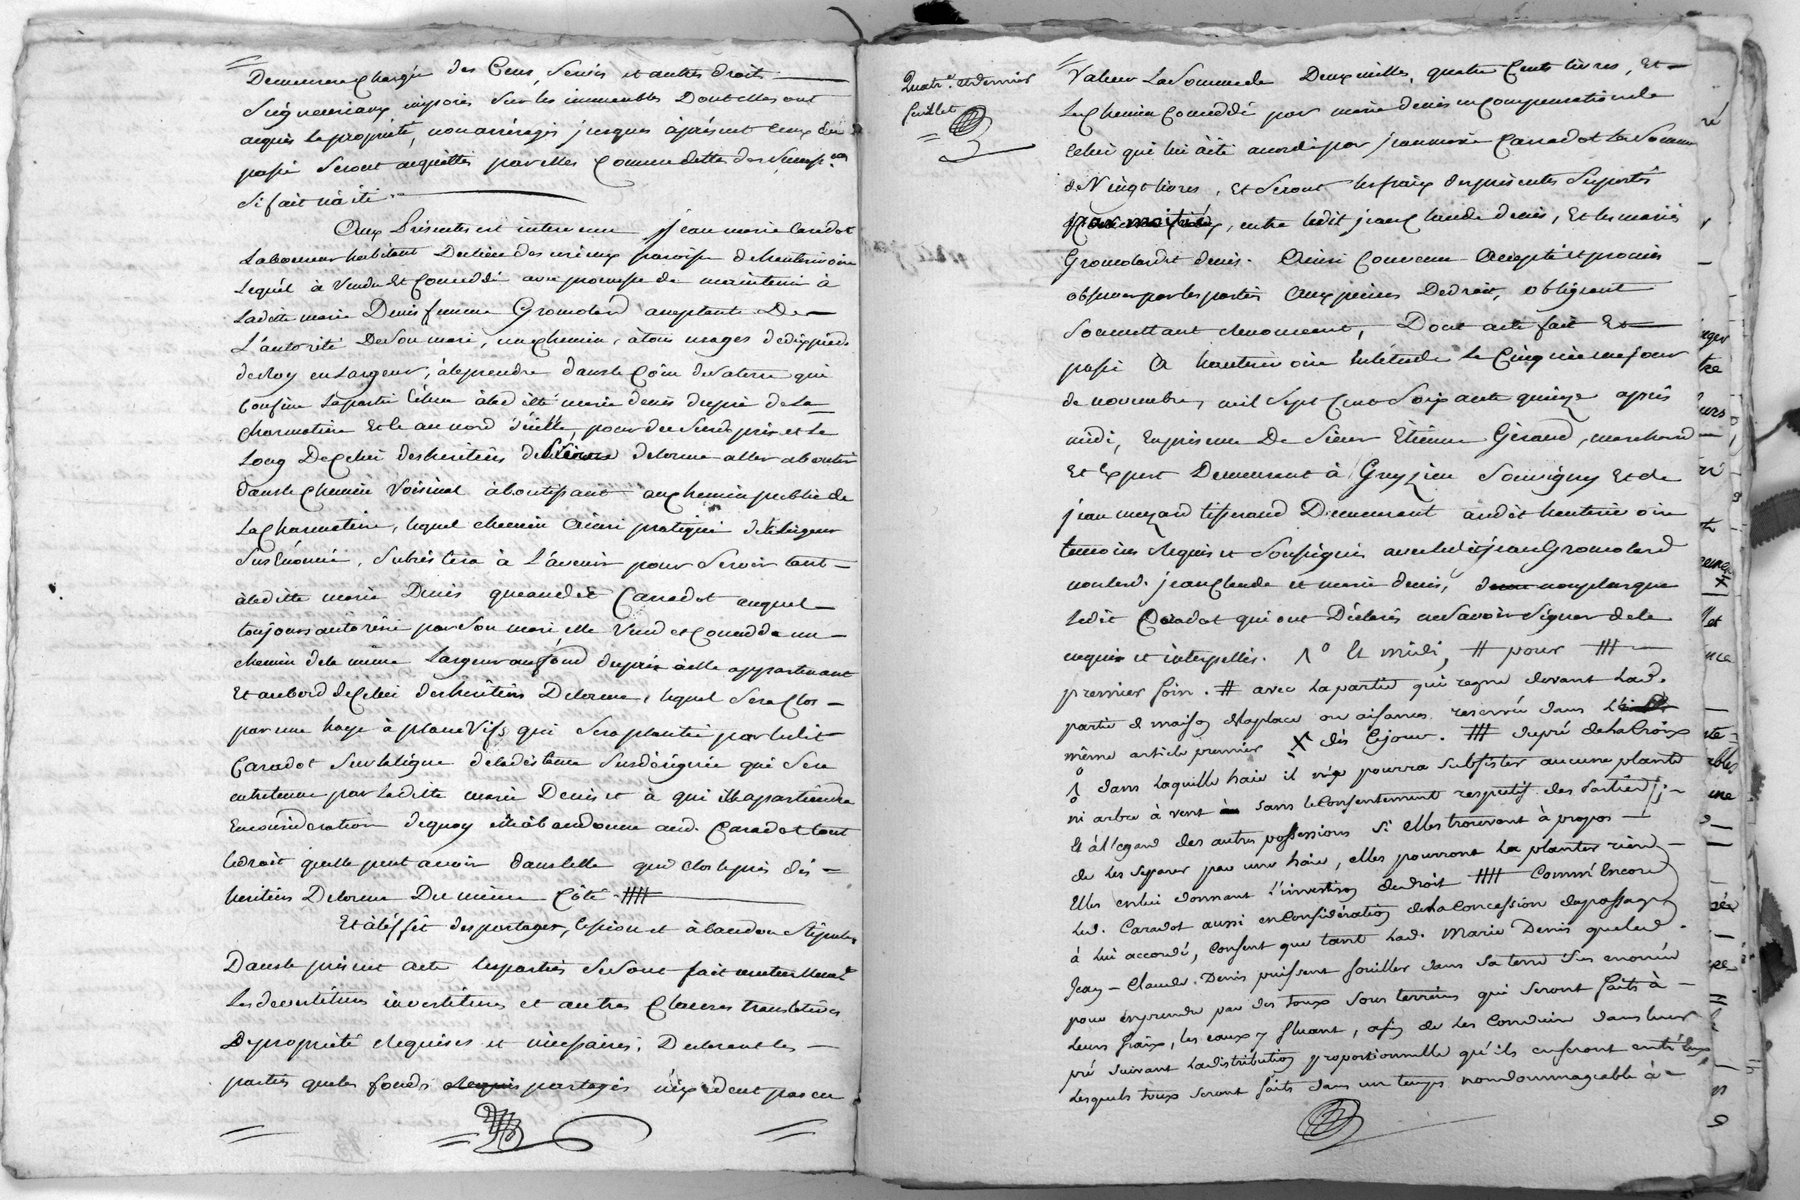 Demeurera chargée des Cens, Servis et autres droits
Seigneuriaux imposés sur les immeubles dont elles ont
acquis la propriété, non arréragés jusques à présent ceux du
passé seront acquittés par elles comme dette des successions
si fait n'a été.
Aux Présentes est intervenu jean marie Caradot
Laboureur habitant du lieu des mieux paroisse de hauterivoire
Lequel à vendu et Conceddé avec promesse de maintenir à
Ladite marie Denis femme Gromolard acceptante De
L'autorité De son mari, un chemin, à tous usages de dix pieds
de Roy en Largeur, à le prendre dans le Coin de sa terre qui
Confine la partie échue à lad ite marie denis du pré de La
charmatine et le au nord d'icelle, pour de suite et le
Long De Celui des heritiers de Delorme aller aboutir
dans le Chemin Voisinal aboutissant au chemin public de
La Charmatine, lequel chemin Ainsi pratiqué de la largeur
Sus Enoncée, subsistera à L'avenir pour servir tant
à ladite marie Denis que audit Caradot auquel
toujours autorisée par son mari elle Vend et Concedde un
chemin de la même Largeur au fond du pré à elle appartenant
Et au bord de Celui des héritiers Delorme, lequel sera Clos
par une haye à plant Vifs qui sera plantée par ledit
Caradot sur la ligne de la désignée qui sera
entretenue par ladite marie Denis et à qui elle apartiendra
En considération de quoy elle abandonne aud. Caradot tout
le droit quelle peut avoir dans celle qui clos le prés des
heritiers Delorme Du même Côté ////
Et à l'éffet des partages, Cession et abandon stipulés
Dans le présent acte les parties se sont fait mutuellement
Les devestitures investitures et autres Clauses translatives
De propriété Requises et nécéssaires, Declarent les
parties que les fonds partagés n'éxcédent pas en
Quatr.e et dernier
feuillet
Valeur La Somme de Deux milles, quatre Cents livres, Et
Le Chemin Conceddé par marie denis en Compensation de
Celui qui lui à été accordé par jean marie Caradot La Somme
de Vingt livres, Et seront les fraix des présentes Supportés
par moitié, entre ledit jean Claude denis, Et les mariés
Gromolard et denis. Ainsi Convenu Accepté et promis
observer par les parties Aux peines De droit, obligeant
Soumettant Renonceant, Dont acte fait Et
passé A hauterivoire En l'étude Le Cinquième jour
de novembre, mil Sept Cent Soixante quinze après
midi, En présence De Sieur Étienne Giraud, marchand
Et Expert Demeurant à Grezieu Souvigny Et de
jean muzard tisserand Demeurant audit hauterivoire
temoins Requis et Soussignés avec ledit jean Gromolard
non led. jean Claude et marie denis, non plus que
Ledit Caradot qui ont Déclarés ne savoir signer de ce
enquis et interpellés. /\° Et midi, // pour ///
premier foin. // avec la partie qui regne devant Lad.
partie de maison et la place ou aisances reservée dans L
même article premier X dès Cejour. /// du pré de la Croix
/\° dans laquelle haie il n'y pourra subsister aucune plante
ni arbre à vent sans le Consentement respectif des Parties;
Et à l'egard des autres possessions si elles trouvent à propos
de les separer par une haie, elles pourront la planter
Elles en lui donnant L'invertison de droit //// Comm'Encore
Led. Caradot aussi en Considération de la Concession de passage
à Lui accordé, Consent que tant Lad. Marie Denis que led.
Jean-Claude Denis puissent fouiller dans sa terre sus enoncée
pour en prendre par des toux sous terreins qui seront faits à
Leurs fraix, les eaux y fluant, afin de les conduire dans leurs
pré suivant La distribution proportionnelle qu'ils en feront entr'eux
Lesquels toux seront faits dans un temps non dommageable à